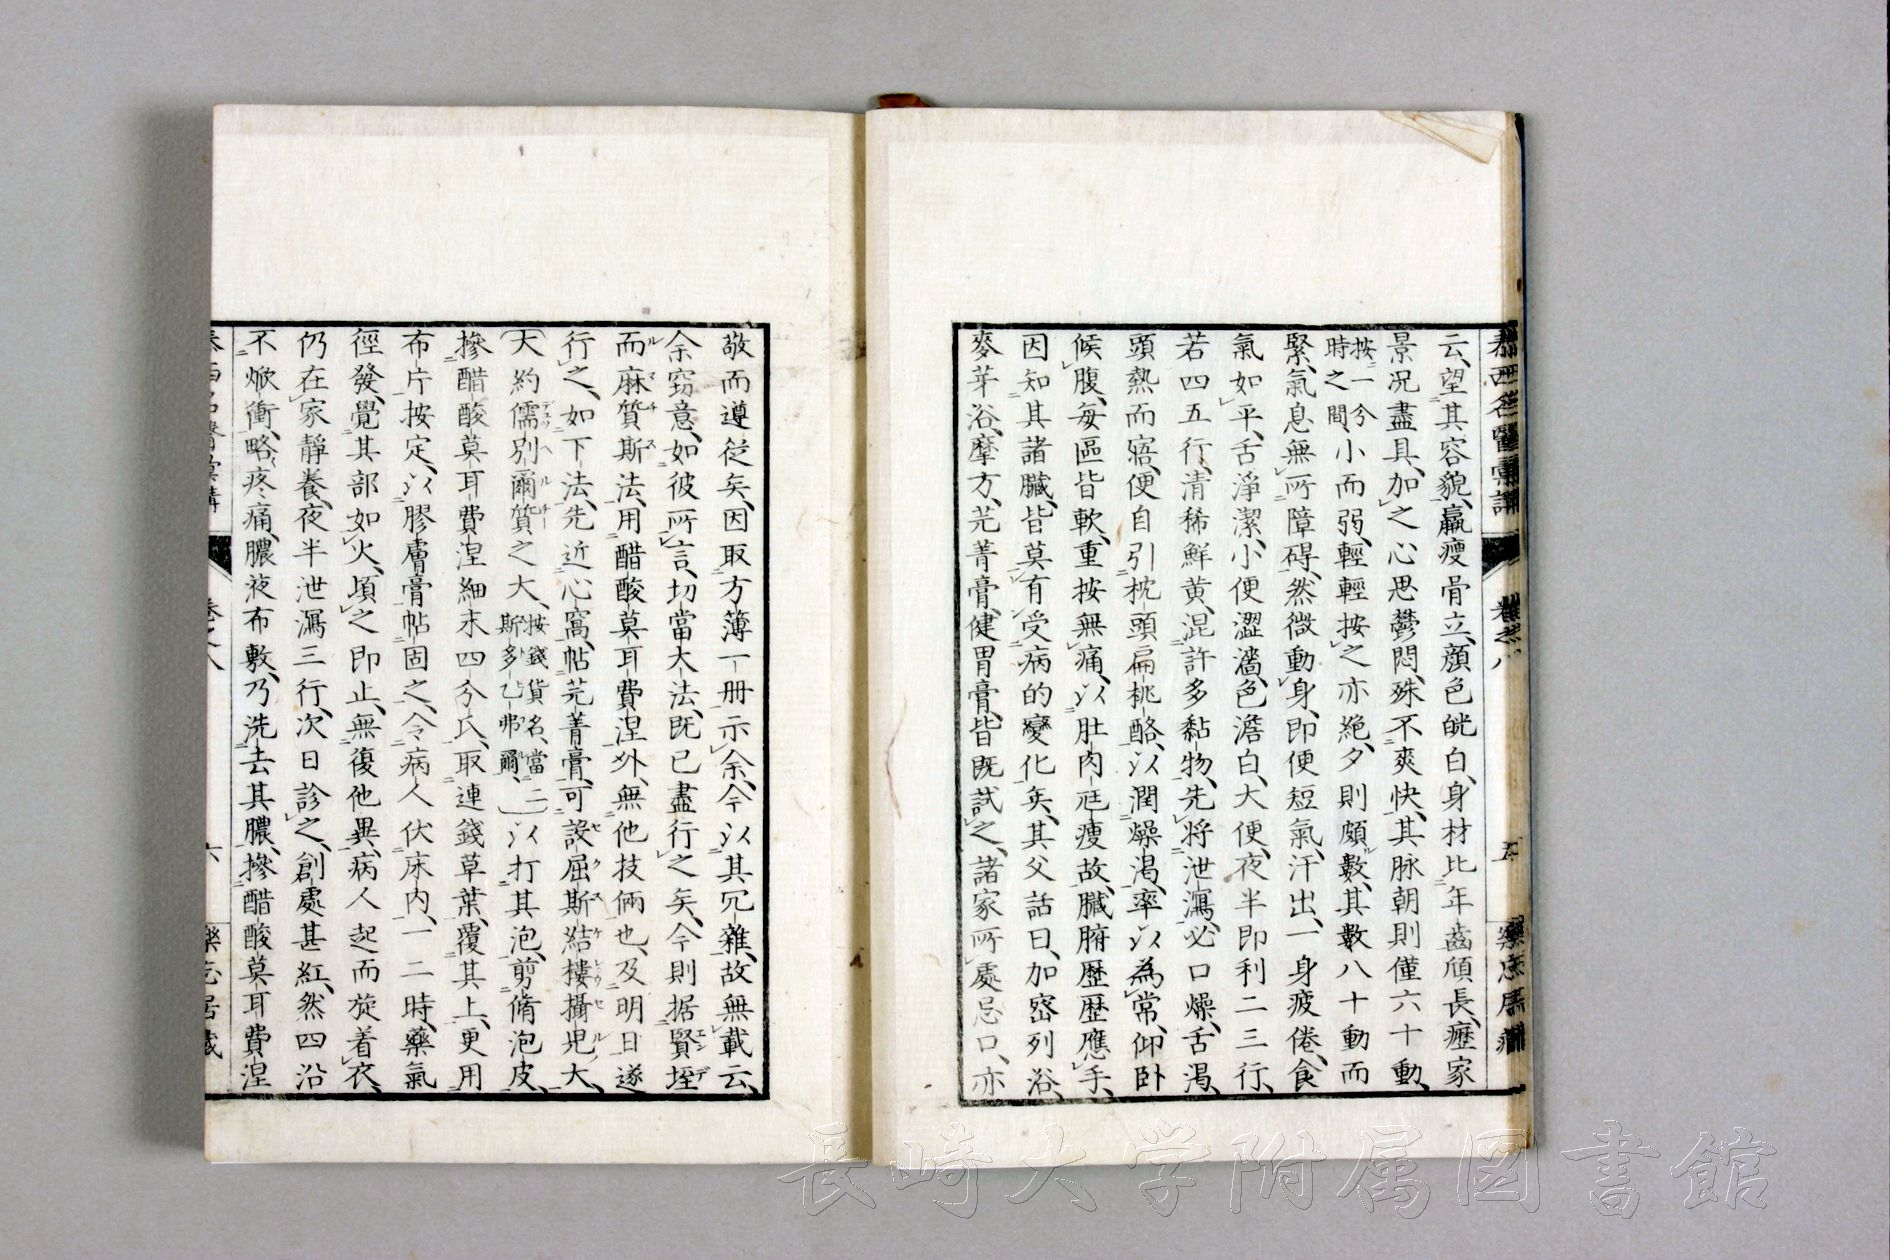 泰西名醫彙講
卷之八
五
云、望其容貌、羸瘦骨立、顏色㿠白、身材比年齒頎長、瘞家
景況盡具、加之心思鬱悶、殊不爽快、其脉朝則僅六十動、
按一分時之間小而弱、輕輕按之亦絕、夕則頗數、其數八十動而
緊、氣息無所障碍、然微動身、即便短氣、汗出、一身疲倦、食
氣如平、舌淨潔、小便澀濇、色澹白、大便、夜半即利二三行、
若四五行、清稀鮮黄、混許多黏物、先將泄瀉、必口燥、舌渴、
頭熱而寤、便自引枕頭扁桃酪、以潤燥渴、率以為常、仰卧
候腹、每區皆軟、重按無痛、以肚肉尫瘦故、臟腑歷歷應手、
因知其諸臟、皆莫有受病的變化矣、其父話曰、加密列浴、
麥芽浴、摩方、芫菁膏、健胃膏、皆既試之、諸家所處忌口、亦
敬而遵從矣、因取方簿一册示余、今以其冗雜、故無載云、
余窃意、如彼所言、切當大法、既已盡行之矣、今則据賢垤
而麻質斯法、用醋酸莫耳費涅外、無他技倆也、及明日遂
行之、如下法、先近心窩、帖芫菁膏、可設屈斯結樓攝児大、
（大約儒別爾質之大、按錢貨名、當二斯多乙弗爾、）以打其泡、剪脩泡皮、
摻醋酸莫耳費涅細末四分氏、取連錢草葉、覆其上、更用
布片按定、以膠膚膏帖固之、令病人伏床内、一二時、藥氣
徑發、覺其部如火、頃之即止、無復他異、病人起而旋着衣、
仍在家靜養、夜半泄瀉三行、次日診之、創處甚紅、然四沿
不焮衝、略疼痛、膿液布敷、乃洗去其膿、摻醋酸莫耳費涅
泰西名醫彙講
卷之八
六
長崎大学附属図書館